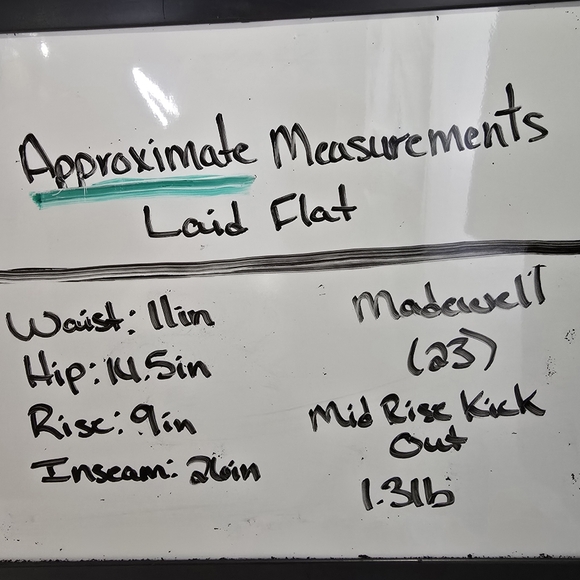 Approximate Measurements
Laid Flat
Waist: 11in
Hip: 14.5in
Rise: 9in
Inseam: 26in
Madewell
(23)
Mid Rise Kick
Out
1.31b